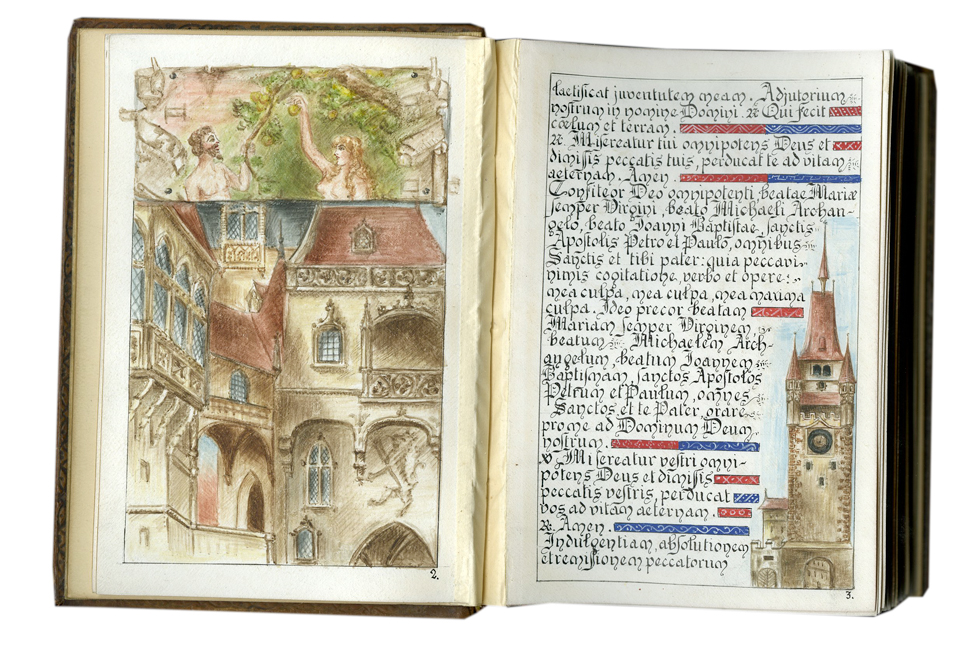 2.
laetificat juventutem meam. Adjutorium
nostrum in nomine Domini. ℟ Qui fecit
cœlum et terram.
℟. Misereatur tui omnipotens Deus et
dimissis peccatis tuis, perducat te ad vitam
aeternam. Amen.
Confiteor Deo omnipotenti, beatae Mariæ
semper Virgini, beato Michaeli Archan-
gelo, beato Joanni Baptistae, sanctis
Apostolis Petro et Paulo, omnibus
Sanctis et tibi pater: quia peccavi
nimis cogitatione, verbo et opere:
mea culpa, mea culpa, mea maxima
culpa. Ideo precor beatam
Mariam semper Virginem,
beatum Michaelem Arch-
angelum, beatum Joannem
Baptismam, sanctos Apostolos
Petrum et Paulum, omnes
Sanctos et te Pater, orare
pro me ad Dominum Deum
nostrum.
℣. Misereatur vestri omni-
potens Deus et dimissis
peccatis vestris, perducat
vos ad vitam aeternam.
℟. Amen.
Indulgentiam, absolutionem
et remissionem peccatorum
3.